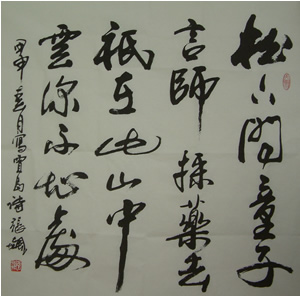 松下問童子
言師採藥去
祇在此山中
雲深不知處
甲申月寫賈島詩張